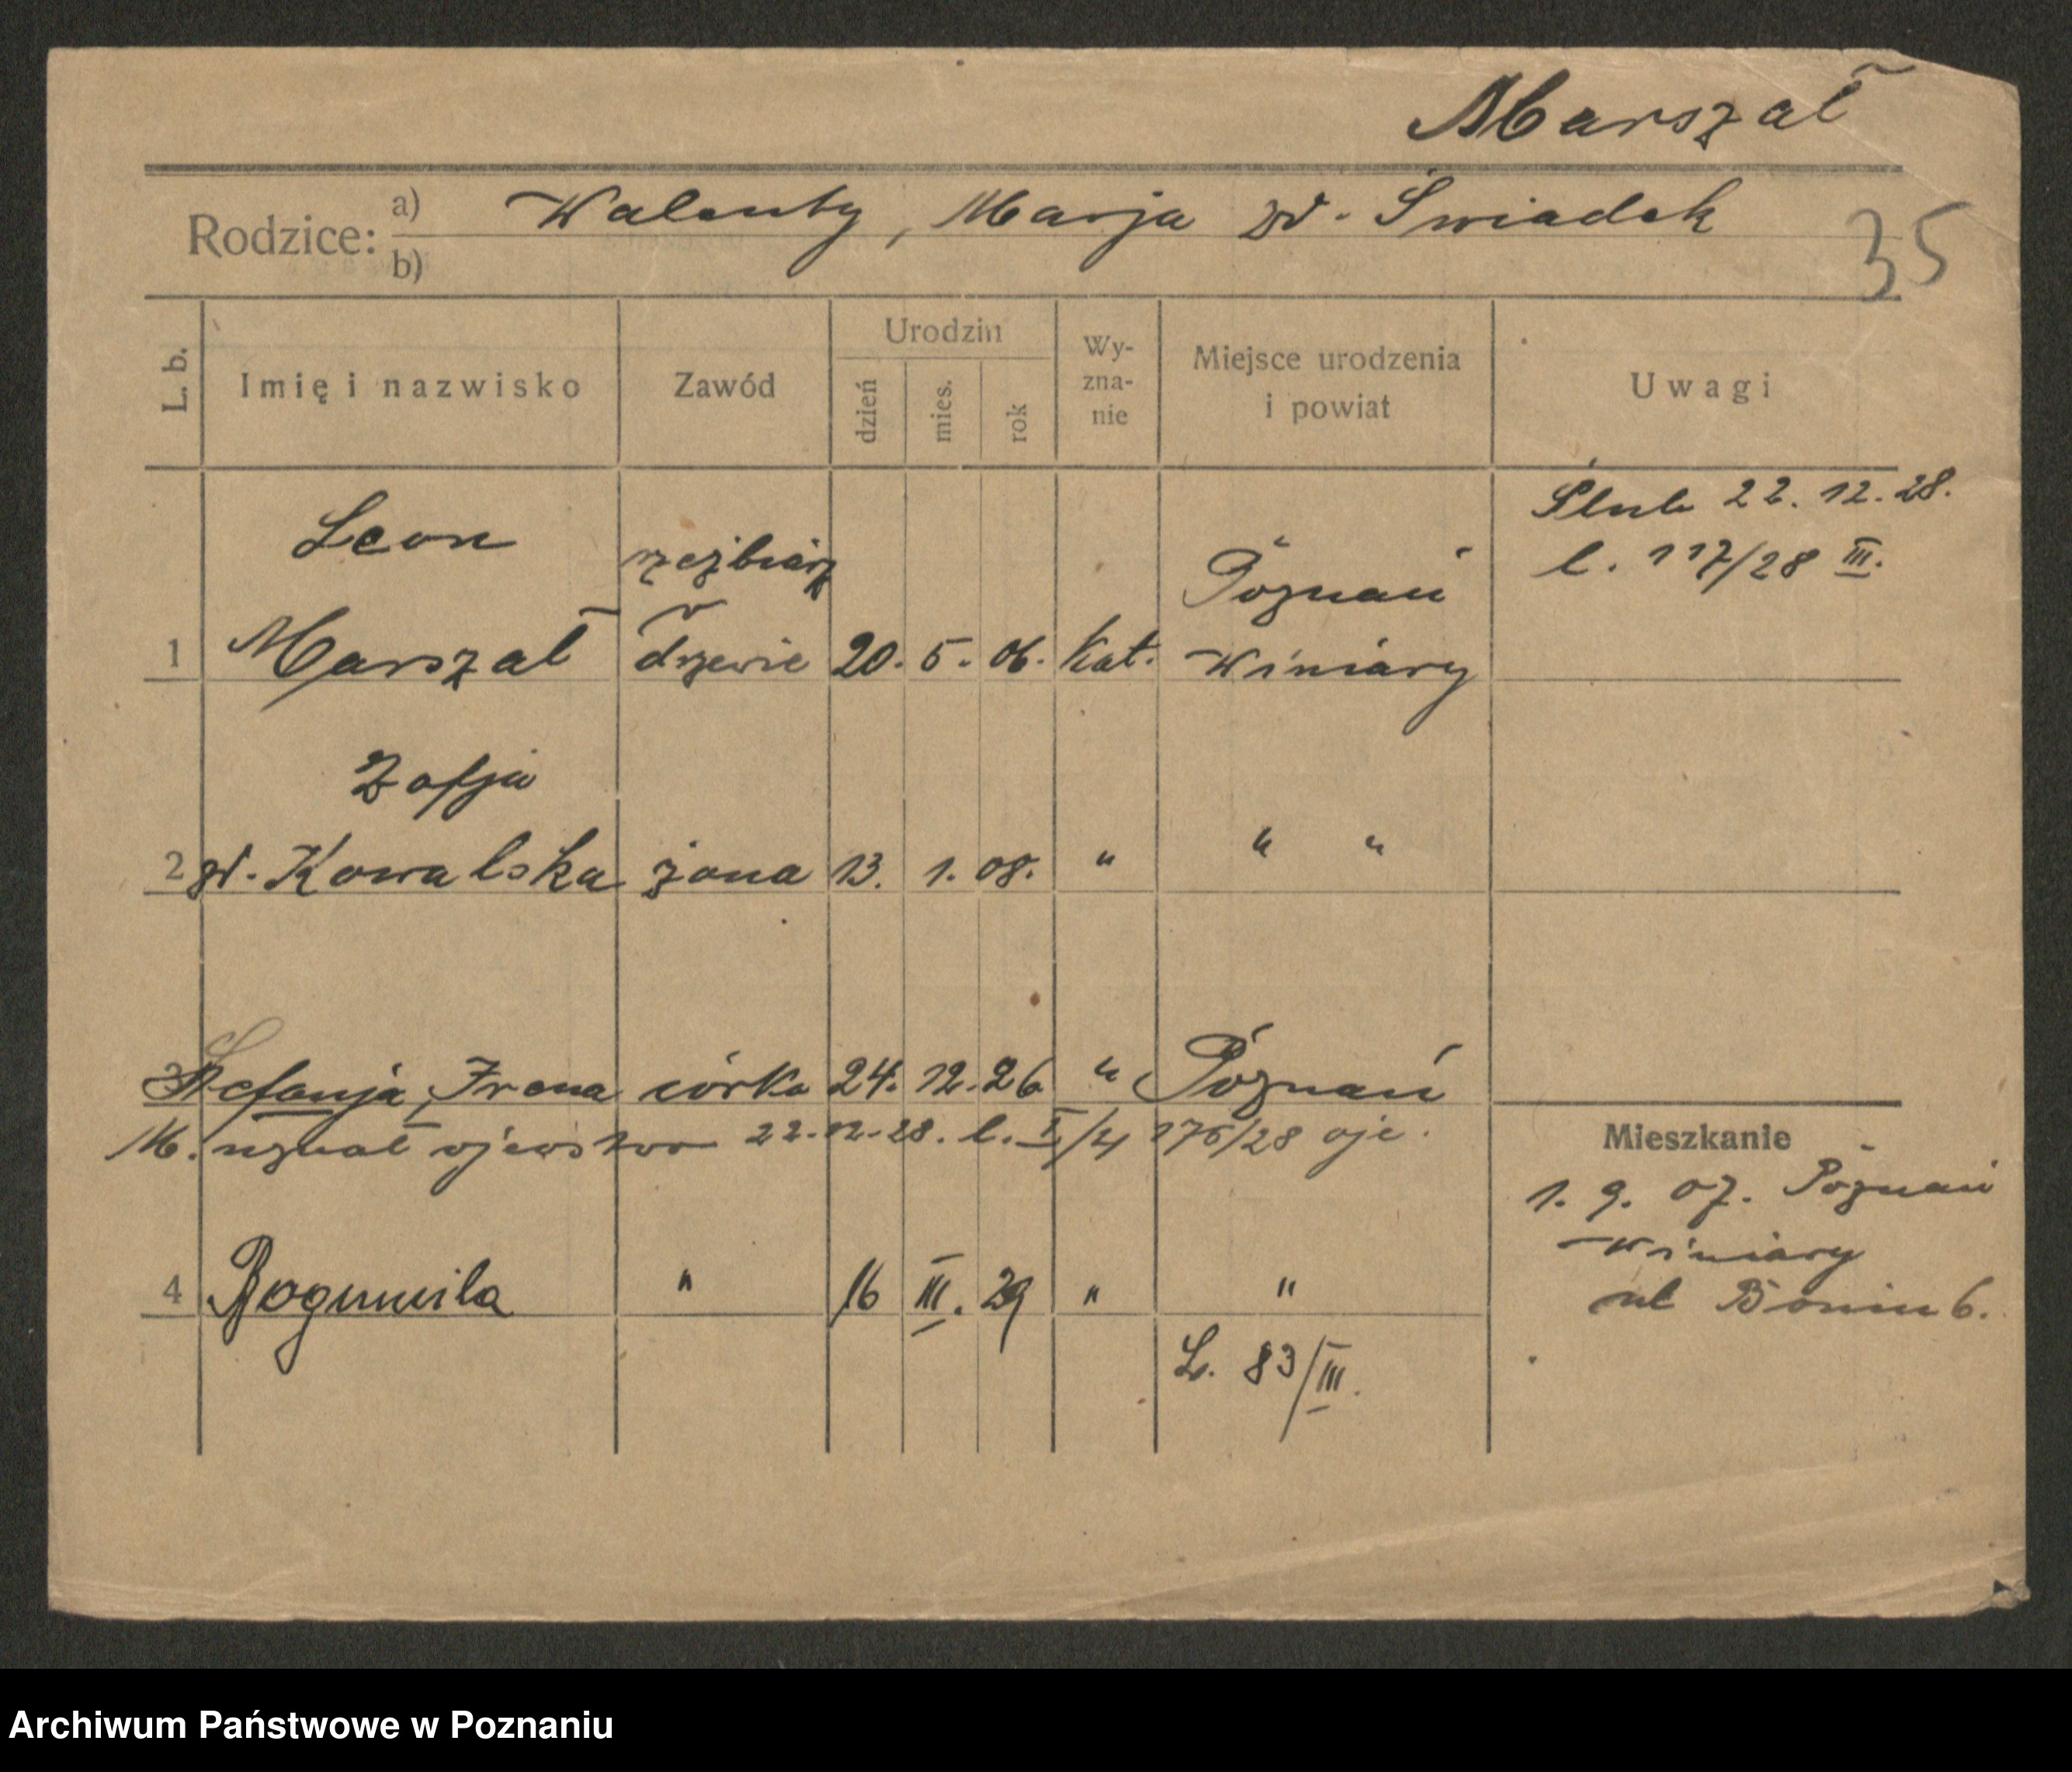 Marszał
Rodzice: a) Walenty, Marja zd. Świadek
b)
35
L. b. Imię i nazwisko Zawód Urodzin dzień mies. rok Wy-zna-nie Miejsce urodzenia i powiat Uwagi
Ślub 22. 12. 28.
l. 117/28 III.
Leon rzeźbiarz Poznań
w
1 Marszał drzewie 20. 5. 06. Kat. Winiary
Zofja
2 zd. Kowalska żona 13. 1. 08. " " "
3 Stefanja, Irena córka 24. 12. 26 " Poznań
M. uznał ojcostwo 22.12.28. l. I/4 176/28 ojc.
Mieszkanie
1. 9. 07. Poznań
Winiary
ul Bonin 6.
4 Bogumiła " 16 III. 29 " "
L. 83/III.
Archiwum Państwowe w Poznaniu